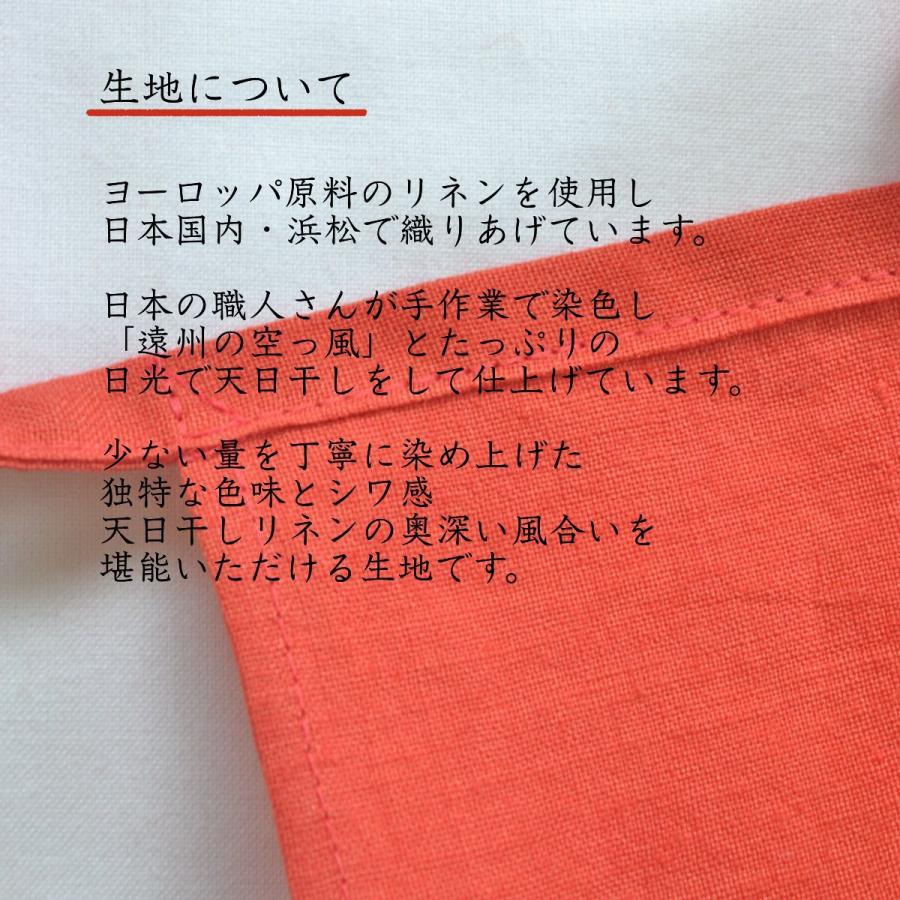 生地について
ヨーロッパ原料のリネンを使用し
日本国内・浜松で織りあげています。
日本の職人さんが手作業で染色し
「遠州の空っ風」とたっぷりの
日光で天日干しをして仕上げています。
少ない量を丁寧に染め上げた
独特な色味とシワ感
天日干しリネンの奥深い風合いを
堪能いただける生地です。